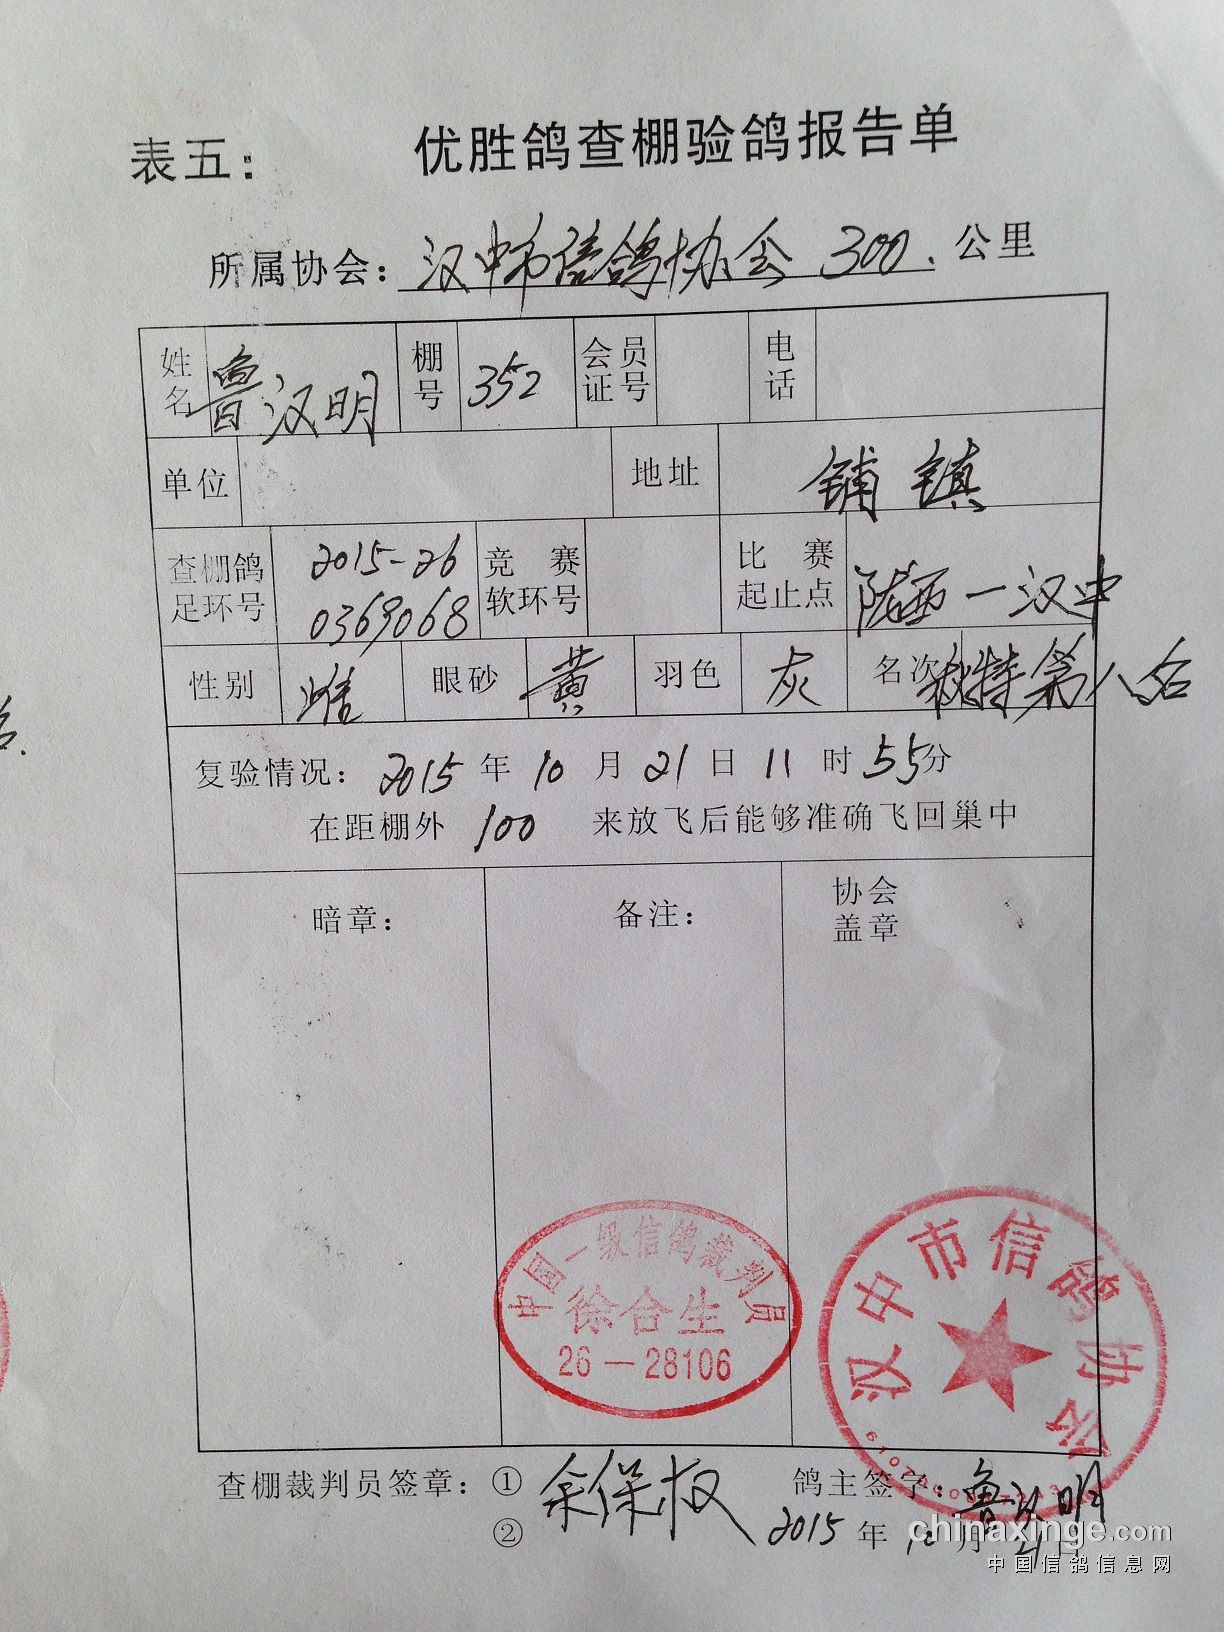 表五： 优胜鸽查棚验鸽报告单
所属协会：汉中市信鸽协会 300. 公里
姓名 鲁汉明 棚号 352 会员证号 电话
单位 地址 铺镇
查棚鸽足环号 2015-26 0369068 竞赛软环号 比赛起止点 陇西一汉中
性别 雌 眼砂 黄 羽色 灰 名次 秋特第八名
复验情况：2015年10月21日11时55分
在距棚外 100 来放飞后能够准确飞回巢中
暗章： 备注： 协会盖章
中国一级信鸽裁判员
徐合生
26—28106
汉中市信鸽协会
查棚裁判员签章：① 余保权 鸽主签字：鲁汉明
② 2015年10月21日
chinaxinge.com
中国信鸽信息网